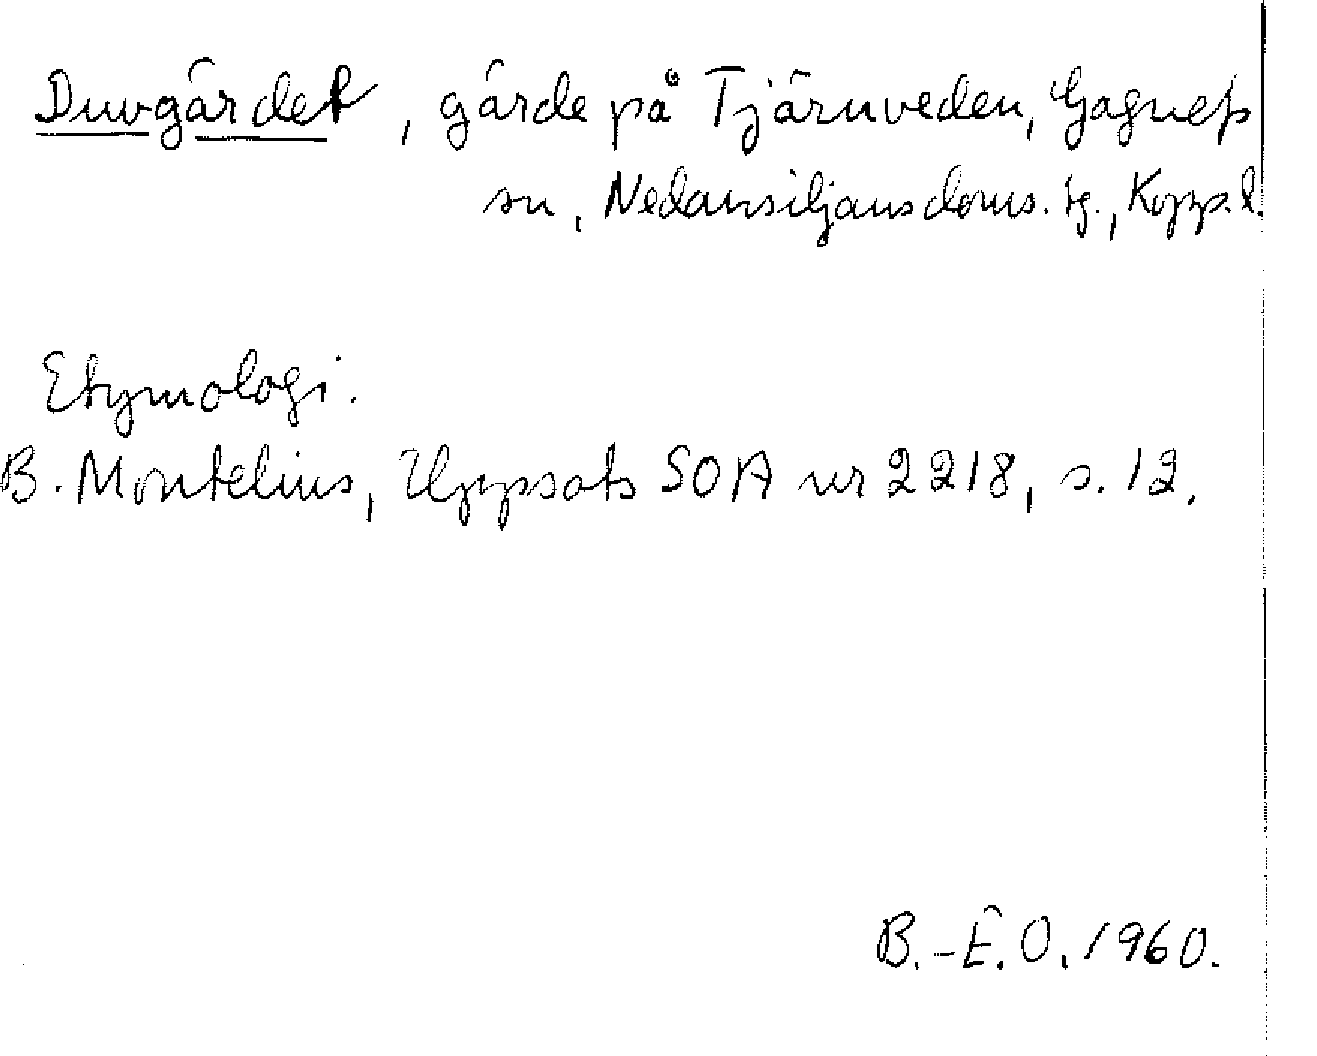 Duvgärdet, gärde på Tjärnveden, Gagnefs
sn, Nedansiljans doms. tg., Kopp.l.
Etymologi.
B. Montelius, Uppsats SOA nr 2218, s. 12.
B.-E. O. 1960.